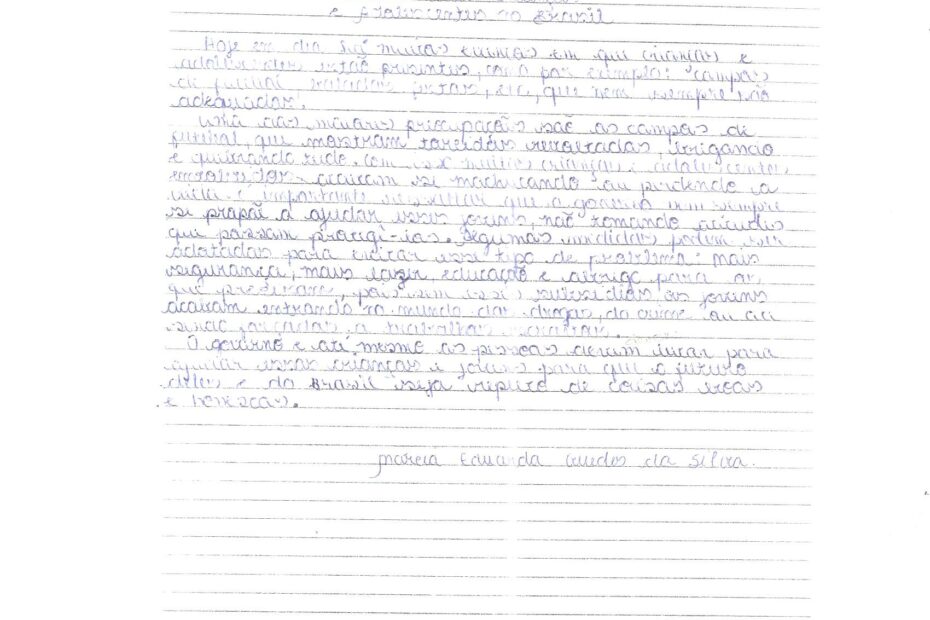 e Adolescentes no Brasil
Hoje em dia há muitos eventos em que crianças e
adolescentes estão presentes, como por exemplo: "campos
de futebol, festas, etc, que nem sempre são
adequados".
Uma das maiores preocupações são os campos de
futebol, que mostram torcidas revoltadas, brigando
e quebrando tudo. com isso muitas crianças e adolescentes
acabam se machucando ou perdendo a
vida. É importante ressaltar que o governo nem sempre
se propõe a ajudar esses jovens, não tomando atitudes
que possam protegê-los. Algumas medidas podem ser
adotadas para evitar esse tipo de problema: mais
segurança, mais lazer educação e abrigo para os
que precisam, pois sem esses subsídios os jovens
acabam entrando no mundo das drogas, do crime ou até
forçados a trabalhar
O governo e até mesmo as pessoas devem lutar para
ajudar essas crianças e jovens para que o futuro
deles e do Brasil seja repleto de coisas boas
e honestas.
Maria Eduarda Guedes da Silva.